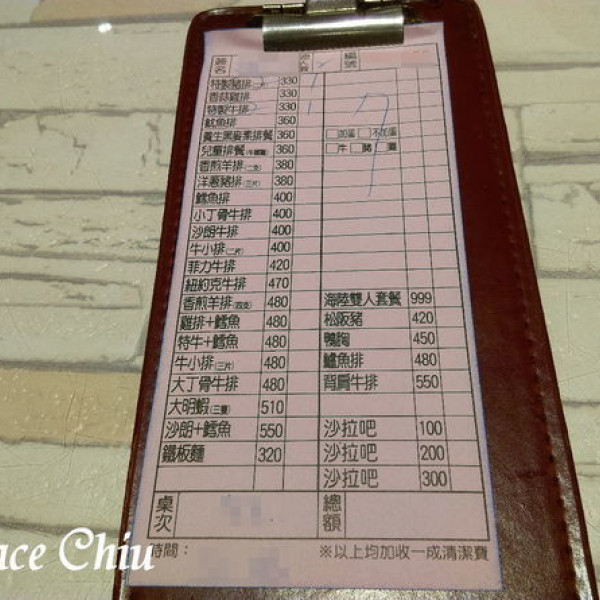 簽名
編號
特製豬排(二片) 330
香蒜雞排 330
特製牛排 330
魷魚排 360
養生黑麥素排餐 360 □加蛋 □不加蛋
兒童排餐 360 □牛 □豬 □雞
香煎羊排(二支) 380
洋蔥豬排(三片) 380
鱈魚排 400
小丁骨牛排 400
沙朗牛排 400
牛小排(二片) 400
菲力牛排 420
紐約克牛排 470
香煎羊排(四支) 480 海陸雙人套餐 999
雞排+鱈魚 480 松阪豬 420
特牛+鱈魚 480 鴨胸 450
牛小排(三片) 480 鱸魚排 480
大丁骨牛排 480 背肩牛排 550
大明蝦(三隻) 510
沙朗+鱈魚 550 沙拉吧 100
鐵板麵 320 沙拉吧 200
沙拉吧 300
桌次 總額
時間: ※以上均加收一成清潔費
ace Chiu